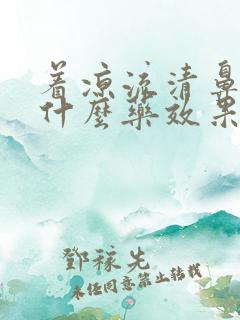 着凉流清鼻
什麼药效果
鄧稼先
未经同意禁止转载